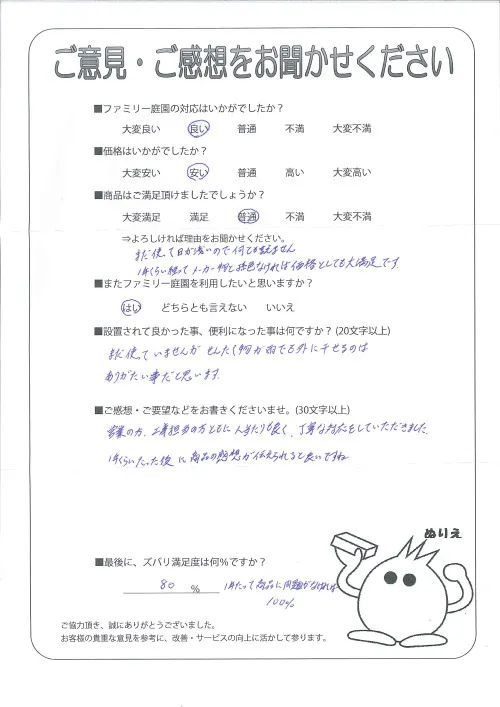 ご意見・ご感想をお聞かせください
■ファミリー庭園の対応はいかがでしたか？
大変良い 良い 普通 不満 大変不満
■価格はいかがでしたか？
大変安い 安い 普通 高い 大変高い
■商品はご満足頂けましたでしょうか？
大変満足 満足 普通 不満 大変不満
⇒よろしければ理由をお聞かせください。
まだ使って日が浅いので何とも言えません
1年くらい経ってメーカー物と遜色なければ価格としても大満足です
■またファミリー庭園を利用したいと思いますか？
はい どちらとも言えない いいえ
■設置されて良かった事、便利になった事は何ですか？(20文字以上)
まだ使っていませんが せんたく物が雨でも外に干せるのは
ありがたい事だと思います.
■ご感想・ご要望などをお書きくださいませ。(30文字以上)
営業の方、工事担当の方ともに人当たりも良く、丁寧な対応をしていただきました.
1年くらいたった後に商品の感想が伝えられると良いですね
ぬりえ
■最後に、ズバリ満足度は何％ですか？
80 ％ 1年たって商品に問題がなければ
100%
ご協力頂き、誠にありがとうございました。
お客様の貴重な意見を参考に、改善・サービスの向上に活かして参ります。